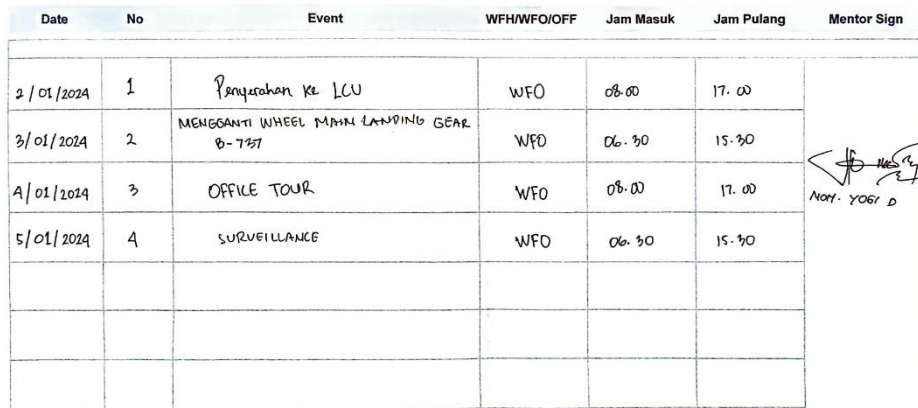 Date No Event WFH/WFO/OFF Jam Masuk Jam Pulang Mentor Sign
2/01/2024 1 Penyerahan Ke LCU WFO 08.00 17.00
MENGGANTI WHEEL MAIN LANDING GEAR
3/01/2024 2 B-737 WFO 06.30 15.30
4/01/2024 3 OFFICE TOUR WFO 08.00 17.00
YOGI D
5/01/2024 4 SURVEILLANCE WFO 06.30 15.30